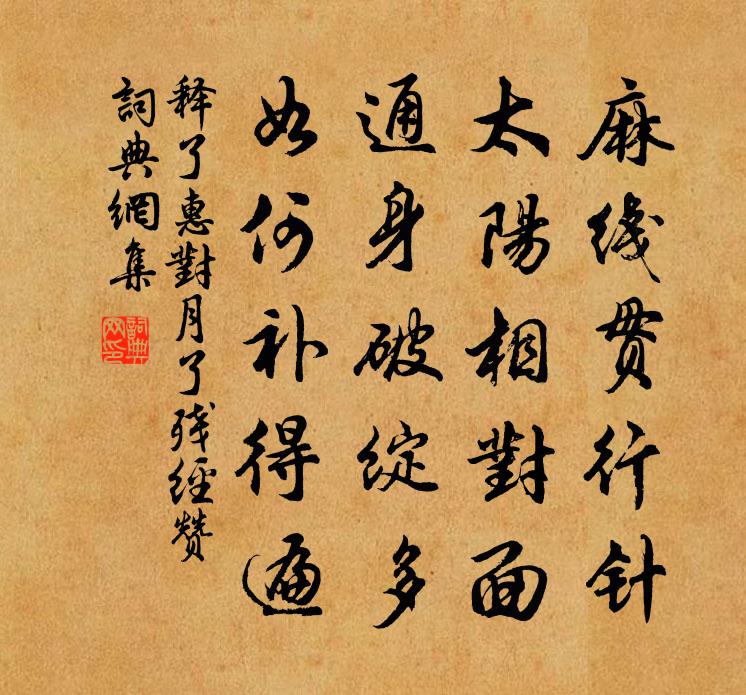 麻线贯行针
太陽相對面
通身破绽多
如何补得遍
释了惠對月了残經赞
詞典網集
詞典网印